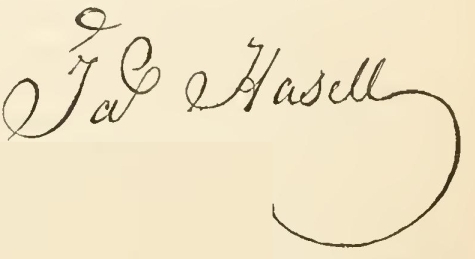 Jas Hasell